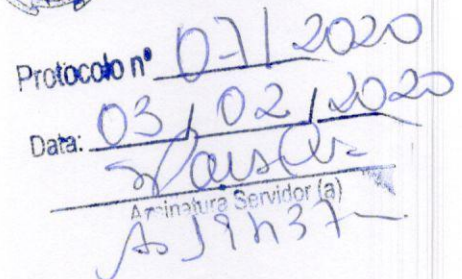 Protocolo nº 07/2020
Data: 03/02/2020
Assinatura Servidor (a)
Às 19h37